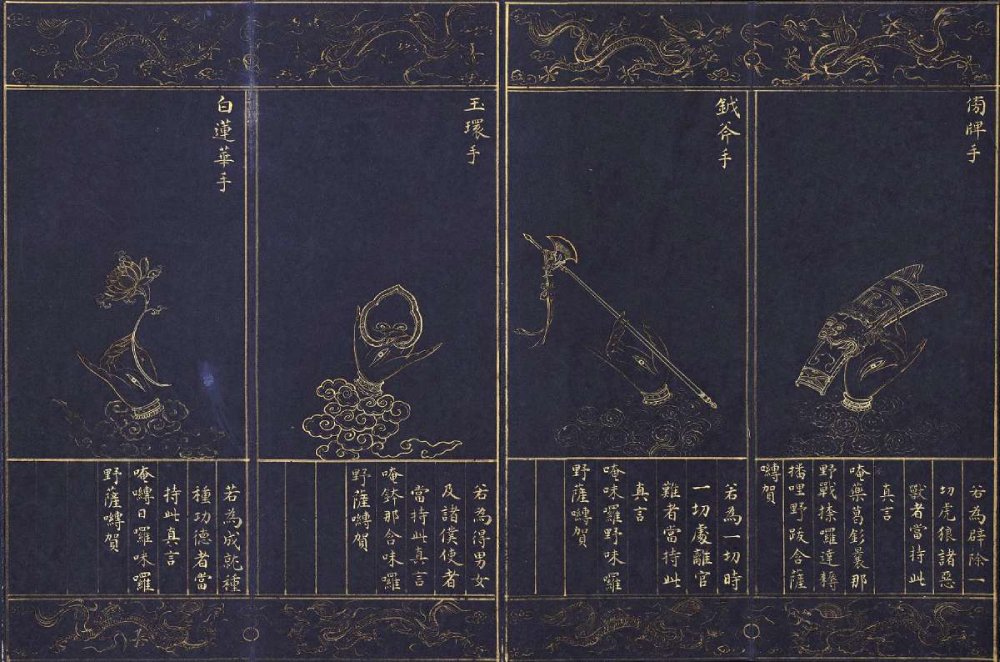 牌手
若為辟除一
切虎狼諸惡
獸者當持此
真言
唵藥葛釤曩那
野戰捺囉達耨
播哩野跛舍薩
嚩賀
鉞斧手
若為一切時
一切處離官
難者當持此
真言
唵味囉野味囉
野薩嚩賀
玉環手
若為得男女
及諸僕使者
當持此真言
唵鉢那味囉
野薩嚩賀
白蓮華手
若為成就種
種功德者當
持此真言
唵嚩日囉味囉
野薩嚩賀